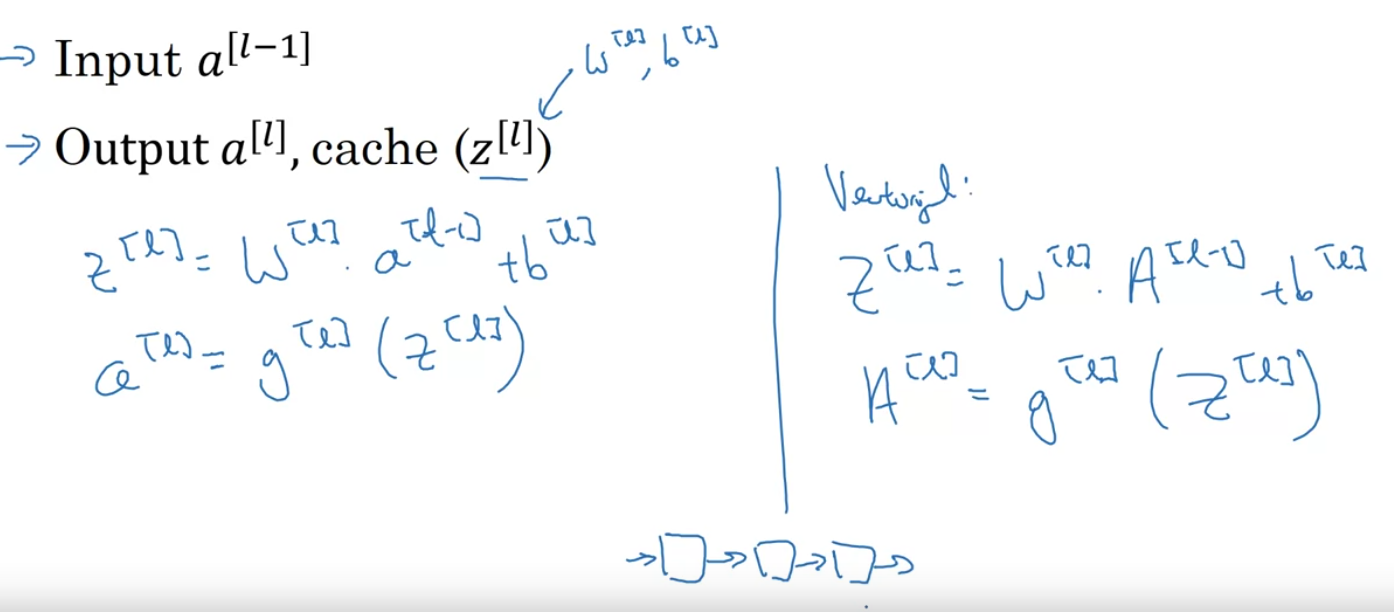 → Input a^[l−1]
W^[l], b^[l]
→ Output a^[l], cache (z^[l])
z^[l] = W^[l] · a^[l-1] + b^[l]
a^[l] = g^[l] (z^[l])
Vectorized:
Z^[l] = W^[l] · A^[l-1] + b^[l]
A^[l] = g^[l] (Z^[l])